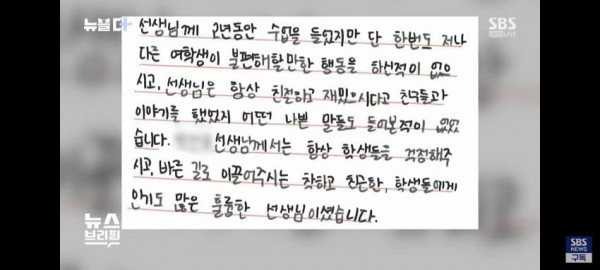 뉴블더
SBS
LIVE
선생님께 2년동안 수업을 들었지만 단 한번도 저나
다른 여학생이 불편해할만한 행동을 하신적이 없으
시고, 선생님은 항상 친절하고 재밌으시다고 친구들과
이야기를 했었지 어떤 나쁜 말들도 들어본적이 없었
습니다. 선생님께서는 항상 학생들을 걱정해주
시고, 바른 길로 이끌어주시는 착하고 친근한, 학생들에게
인기도 많은 훌륭한 선생님이셨습니다.
뉴스
브리핑
SBS
NEWS
구독